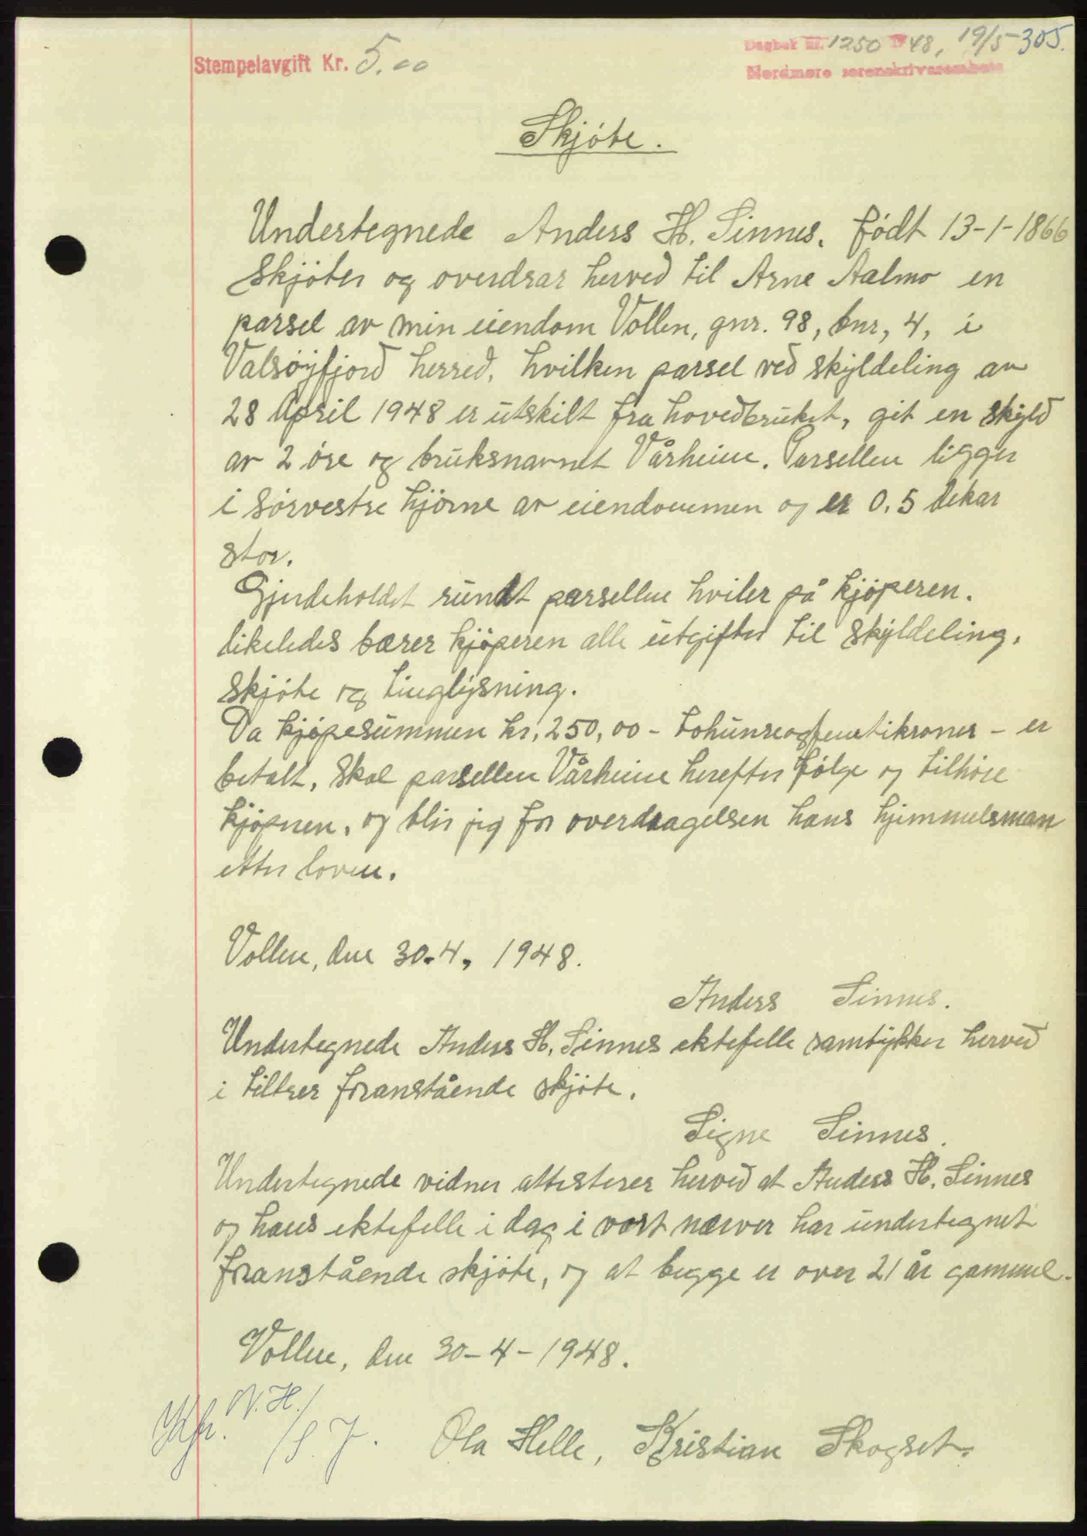 Stempelavgift Kr. 5.00
Dagbok nr. 1250 1948, 19/5 305.
Nordmøre sorenskriverembete
Skjöte.
Undertegnede Anders H. Sinnes. född 13-1-1866
skjöter og overdrar herved til Arne Aalmo en
parsel av min eiendom Vollen, gnr. 98, bnr, 4, i
Valsøyfjord herred. hvilken parsel ved skyldeling av
28 April 1948 er utskilt fra hovedbruket, git en skyld
av 2 öre og bruksnavnet Vårheim. Parsellen ligger
i sörvestre hjörne av eiendommen og er 0.5 dekar
stor.
Gjerdeholdet rundt parsellen hviler på kjöperen.
likeledes bærer kjöperen alle utgifter til skyldeling,
skjöte og tinglysning.
Da kjöpesummen kr, 250,00 - tohundreogfemtikroner - er
betalt, skal parsellen Vårheim herefter fölge og tilhöre
kjöperen, og blir jeg for overdragelsen hans hjimmelsman
etter loven.
Vollen, den 30.4, 1948.
Anders Sinnes.
Undertegnede Anders H. Sinnes ektefelle samtykker herved
i tiltrer foranstående skjöte.
Signe Sinnes.
Undertegnede vidner attesterer herved at Anders H. Sinnes
og hans ektefelle i dag i vort nærver har undertegnet
foranstående skjöte, og at begge er over 21 år gammel.
Vollen, den 30-4-1948.
Ola Helle, Kristian Skogset.
Kfr. N.H./
/S.J.